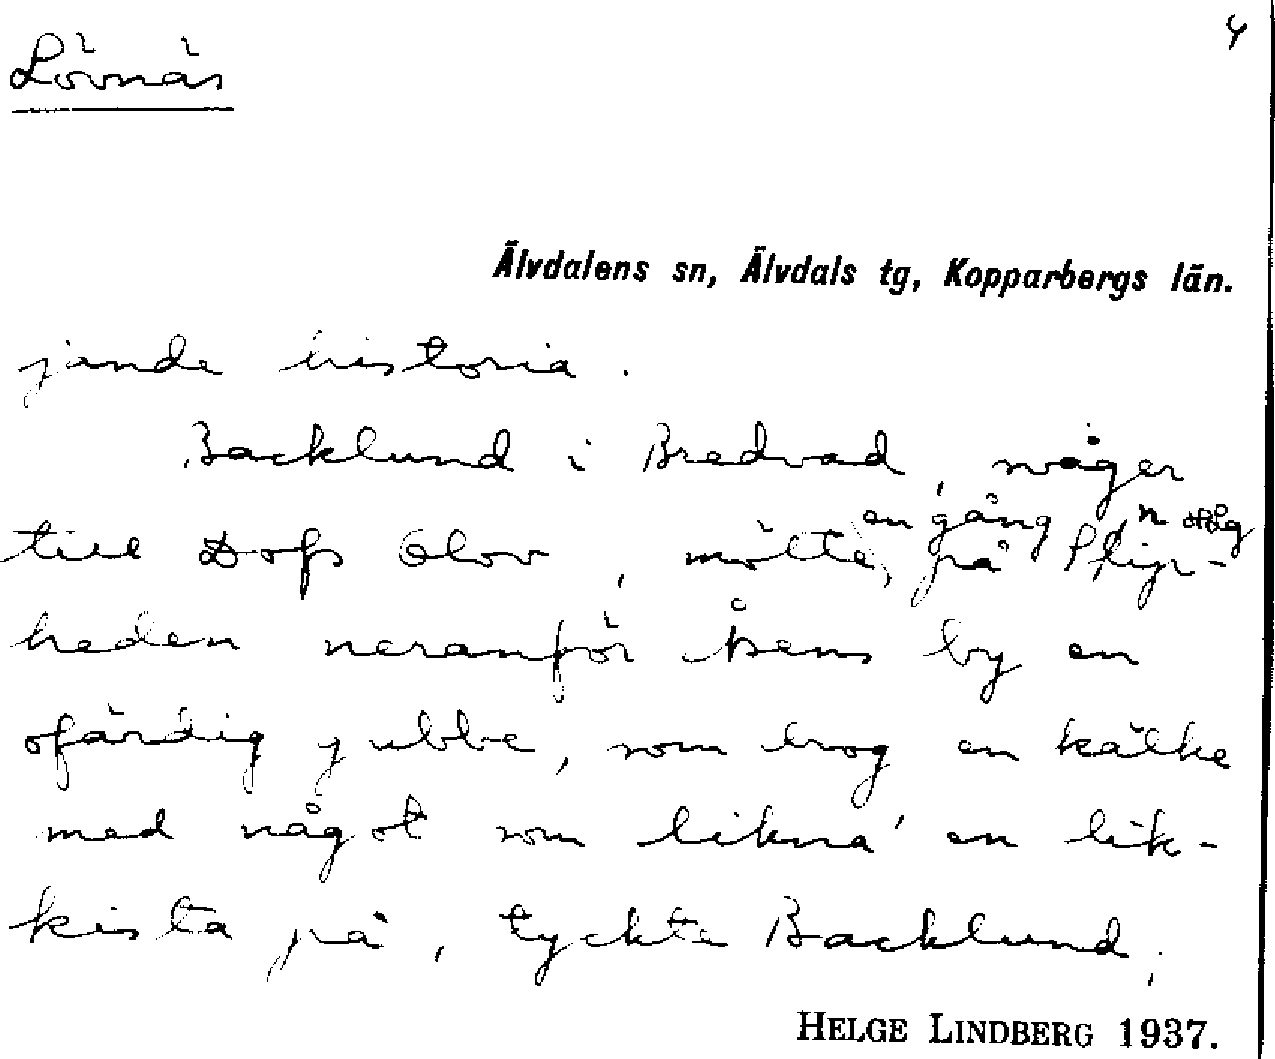 4
Lövnäs
Älvdalens sn, Älvdals tg, Kopparbergs län.
jande historia.
Backlund i Bredvad, måger
en gång
till Dofs Olov, mötte, på
heden neranför Åsens by en
ofärdig gubbe, som drog en kälke
med något som likna' en lik-
kista på, tyckte Backlund,
HELGE LINDBERG 1937.